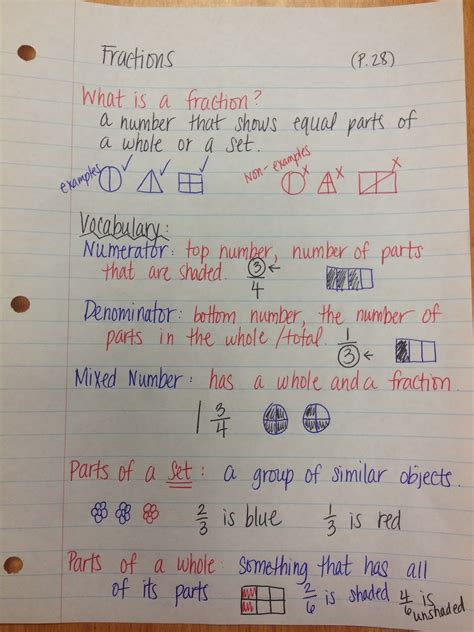 Fractions (P.28)
What is a fraction?
a number that shows equal parts of
a whole or a set.
examples
Non-examples
Vocabulary:
Numerator: top number, number of parts
that are shaded. 3/4
Denominator: bottom number, the number of
parts in the whole/total. 1/3
Mixed Number: has a whole and a fraction.
1 3/4
Parts of a set: a group of similar objects.
2/3 is blue 1/3 is red
Parts of a whole: something that has all
of its parts 2/6 is shaded 4/6 is
unshaded